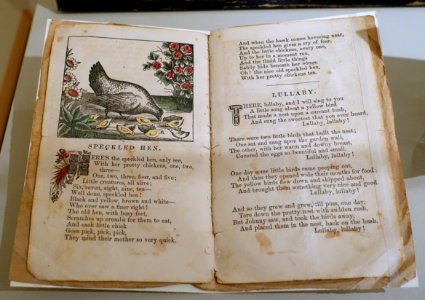 SPECKLED HEN.
HERE'S the speckled hen, only see,
With her pretty chickens, one, two,
three—
One, two, three, four, and five;
Little creatures, all alive;
Six, seven, eight, nine, ten—
Well done, speckled hen!
Black and yellow, brown and white—
Who ever saw a finer sight!
The old hen, with busy feet,
Scratches up crumbs for them to eat,
And each little chick
Goes pick, pick, pick,
They mind their mother so very quick.
And when the hawk comes hovering near,
The speckled hen gives a cry of fear,
And the little chickens, every one,
Up to her in a moment run,
And the timid little things
Safely hide beneath her wings.
Oh! the nice old speckled hen,
With her pretty chickens ten.
LULLABY.
THERE, lullaby, and I will sing to you
A little song about a yellow bird
That made a nest upon a currant bush,
And sung the sweetest that you ever heard,
Lullaby, lullaby!
There were two little birds that built the nest;
One sat and sung upon the garden wall,
The other, with her warm and downy breast,
Covered the eggs so beautiful and small.
Lullaby, lullaby!
One day some little birds came peeping out,
And then they opened wide their mouths for food;
The yellow birds flew down and skipped about,
And brought them something very nice and good
Lullaby, lullaby!
And so they grew and grew, till puss, one day,
Tore down the pretty nest with sudden rush,
But Johnny saw, and took the birds away,
And placed them in the nest, back on the bush.
Lullaby, lullaby!